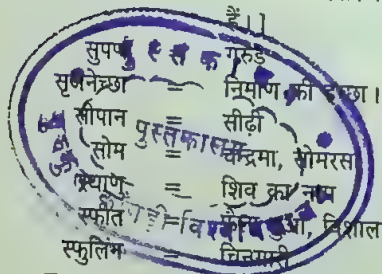 हैं।]
सुपर्ण = गरुड़
सृजनेच्छा = निर्माण की इच्छा।
सोपान = सीढ़ी
सोम = चन्द्रमा, सोमरस
स्थाणु = शिव का नाम
स्फीत = फैला हुआ, विशाल
स्फुलिंग = चिनगारी
पुस्तकालय